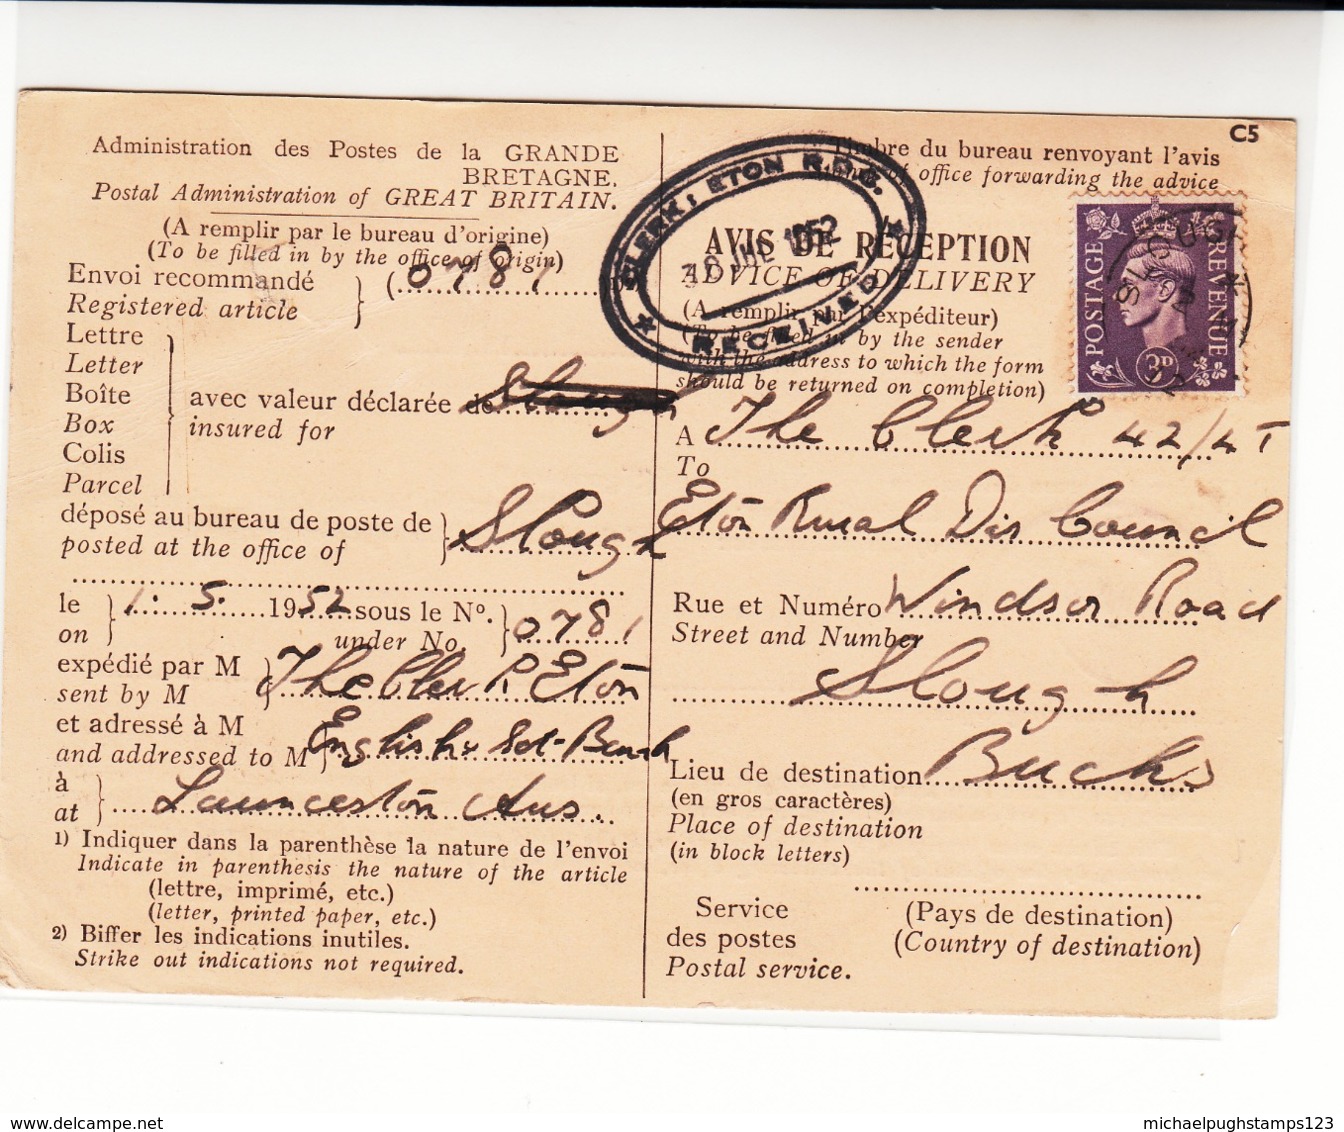 C5
Administration des Postes de la GRANDE
BRETAGNE.
Postal Administration of GREAT BRITAIN.
(A remplir par le bureau d'origine)
(To be filled in by the office of origin)
Envoi recommandé
Registered article
(0781
Lettre
Letter
Boîte
Box
Colis
Parcel
avec valeur déclarée de Slough
insured for
déposé au bureau de poste de
posted at the office of
Slough
le
on
1. 5. 1952 sous le Nº.
under No.
0781
expédié par M
sent by M
The Clerk Eton
et adressé à M
and addressed to M
à
at
Launceston Aus.
1) Indiquer dans la parenthèse la nature de l'envoi
Indicate in parenthesis the nature of the article
(lettre, imprimé, etc.)
(letter, printed paper, etc.)
2) Biffer les indications inutiles.
Strike out indications not required.
CLERK, ETON R.D.C.
JUL 1952
RECEIVED
Timbre du bureau renvoyant l'avis
of office forwarding the advice
AVIS DE RÉCEPTION
ADVICE OF DELIVERY
(A remplir par l'expéditeur)
(To be filled in by the sender
with the address to which the form
should be returned on completion)
POSTAGE
REVENUE
3D
SLOUGH
A
To
The Clerk 42/4T
Eton Rural Dis Council
Rue et Numéro Windsor Road
Street and Number
Slough
Lieu de destination Bucks
(en gros caractères)
Place of destination
(in block letters)
Service
des postes
Postal service.
(Pays de destination)
(Country of destination)
www.delcampe.net
michaelpughstamps123